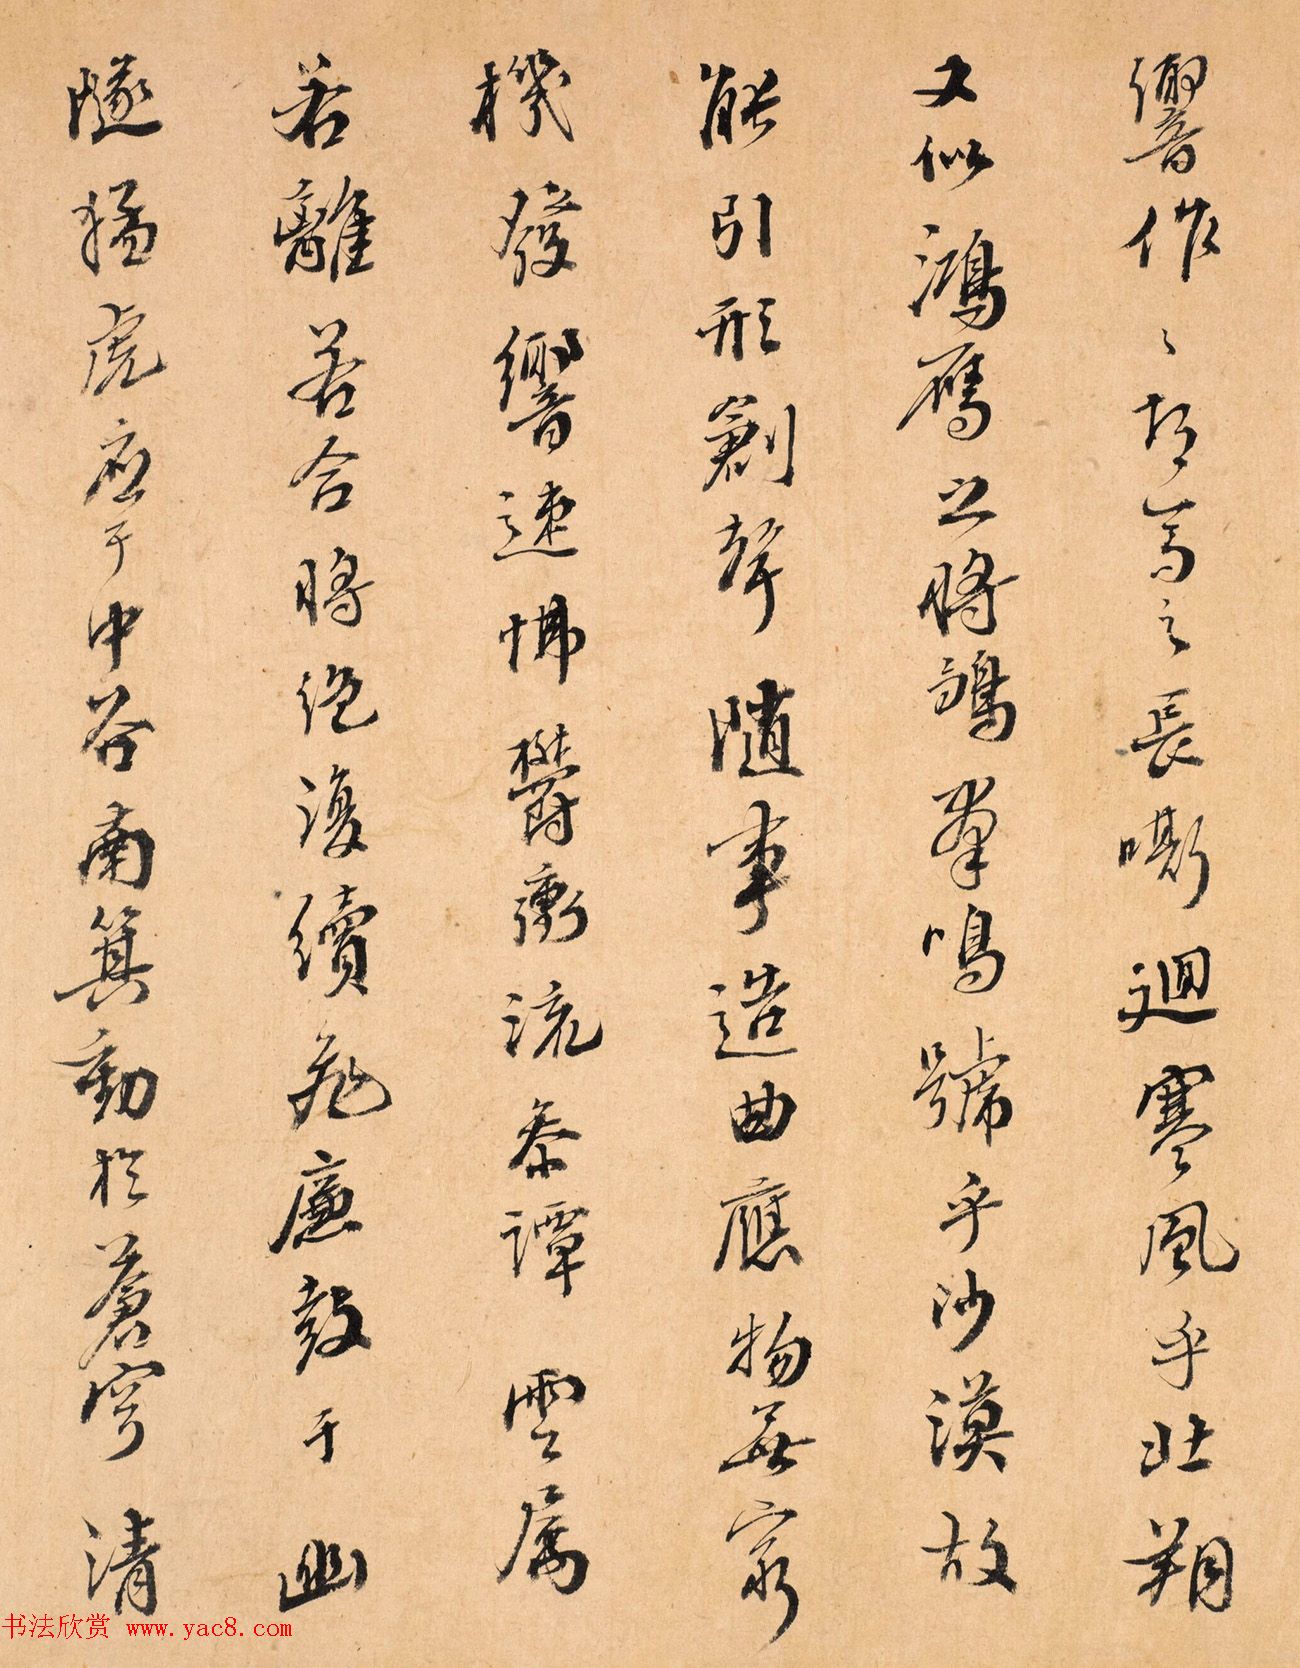 響作〻胡馬之長嘶迴寒風乎北朔
又似鴻鴈之將鶵羣鳴號乎沙漠故
能引形創聲隨事造曲應物無窮
機發響速怫鬱衝流參譚雲屬
若離若合將絕復續飛廉鼓于幽
隧猛虎應于中谷南箕動於蒼穹清
书法欣赏 www.yac8.com